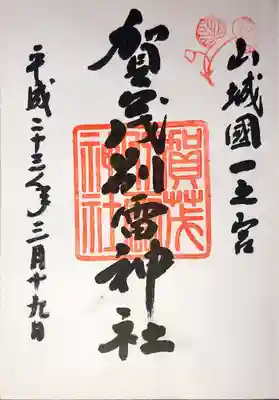 山城國一之宮
賀茂別雷神社
賀茂別雷神社
平成二十三年三月十九日